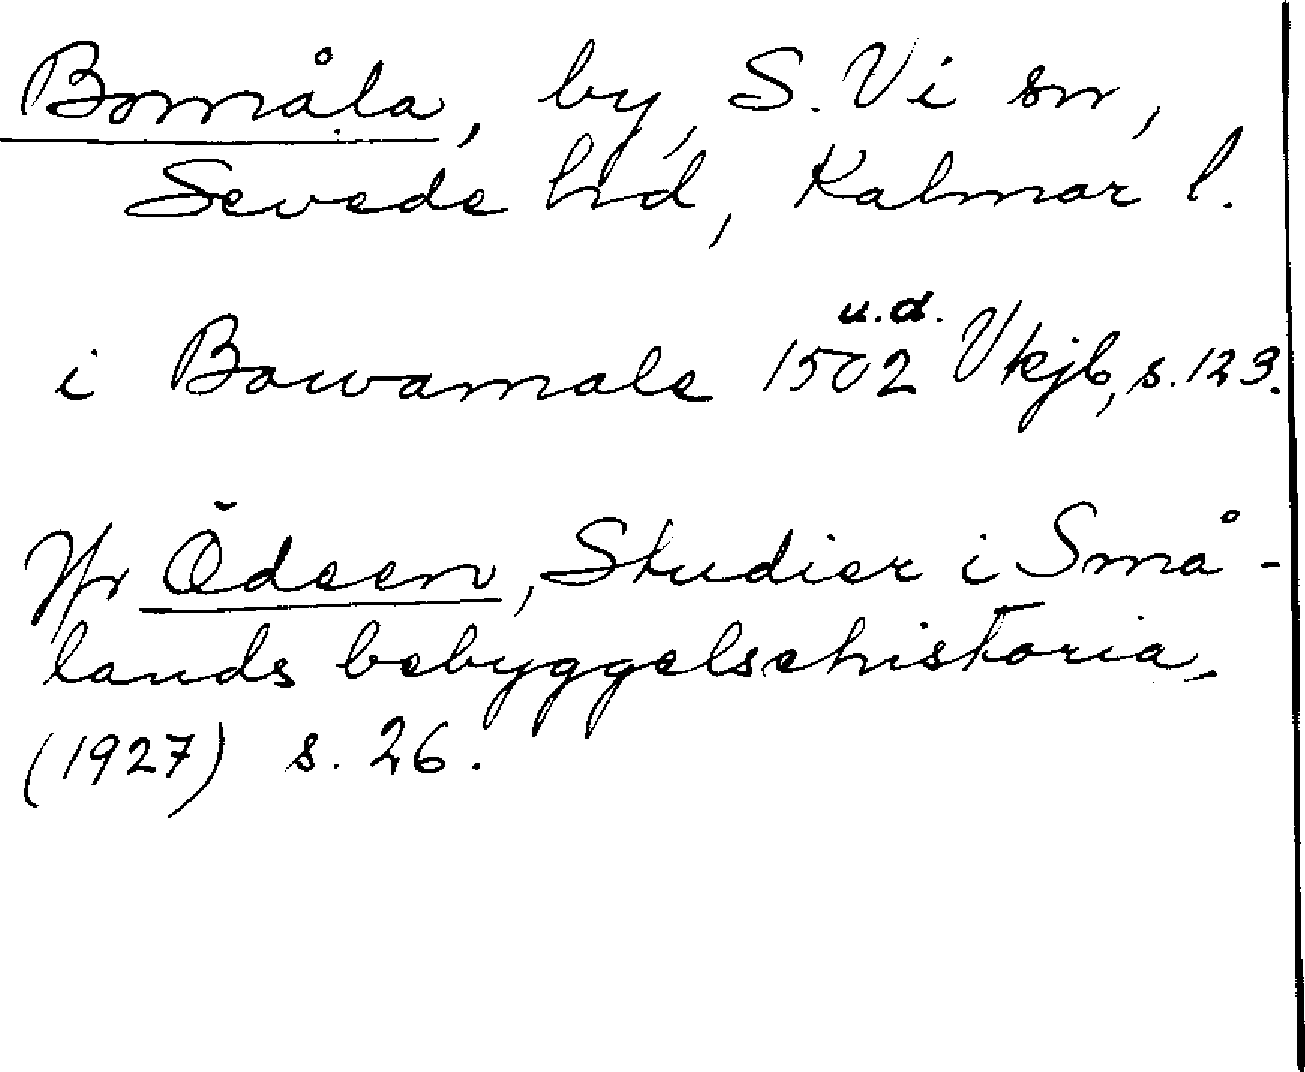 Bomåla, by, S. Vi sn,
Sevede hd, Kalmar l.
i Bowamale 1502 u.d. Vkjb, s. 123.
Jfr Ödeen, Studier i Små-
lands bebyggelsehistoria,
(1927) s. 26.